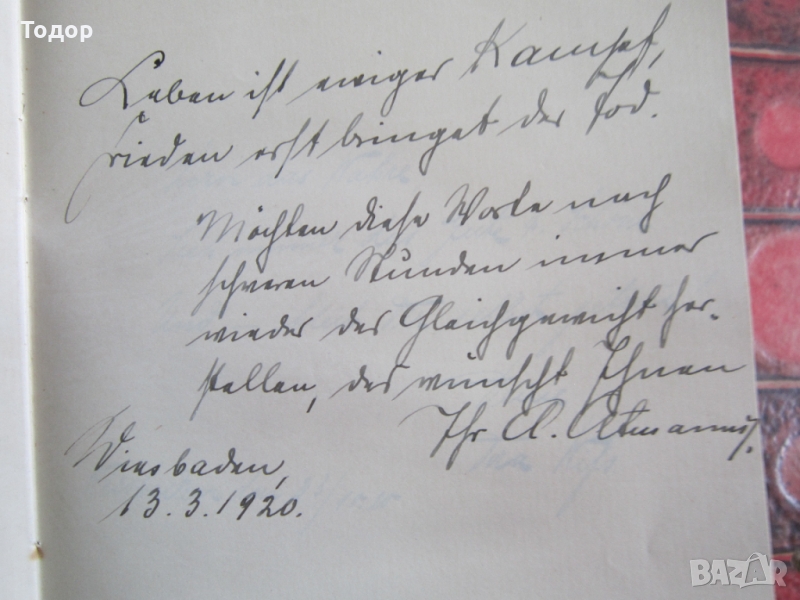 Todor
Leben ist ewiger Kampf,
Frieden erst bringet der Tod.
Möchten diese Worte nach
schweren Stunden immer
wieder das Gleichgewicht her-
stellen, das wünscht Ihnen
Ihr A.
Wiesbaden,
13.3.1920.
BAZAR